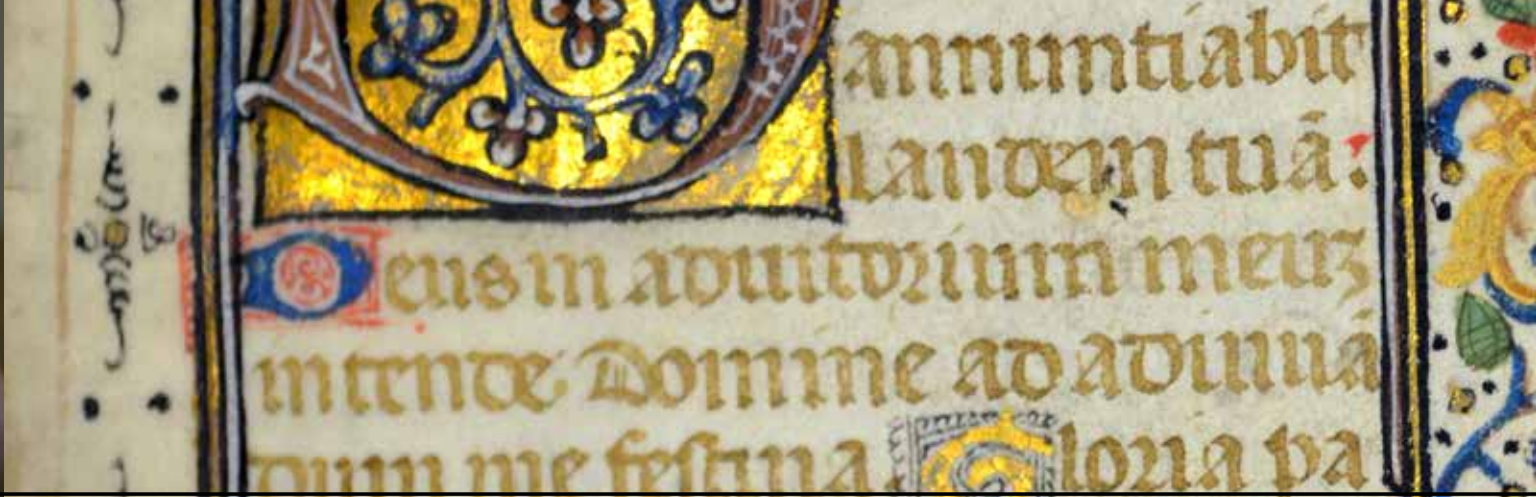 annuntiabit
laudem tuā.
Deus in adiutorium meuz
intende Domine ad adiuuā
dum me festina. Gloria pa